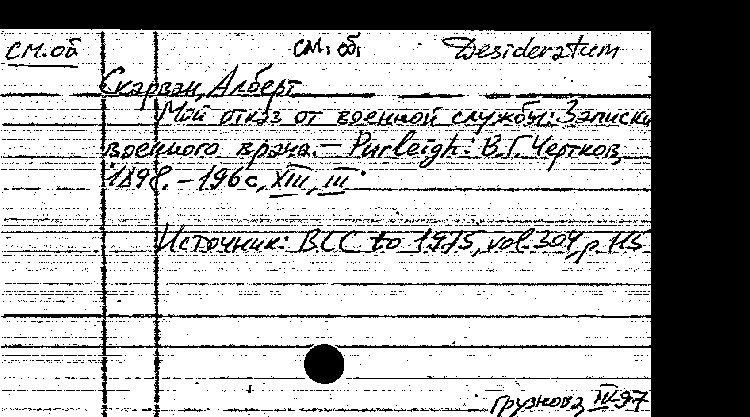 см. об см. об. Desideratum
Скарван, Алберт
Мой отказ от военной службы: Записки
военного врача. – Purleigh: В.Г. Чертков,
1898. – 196 с., XIII, III.
Источник: BLC to 1975, vol. 304, p. 115
Грузнова, IV-97